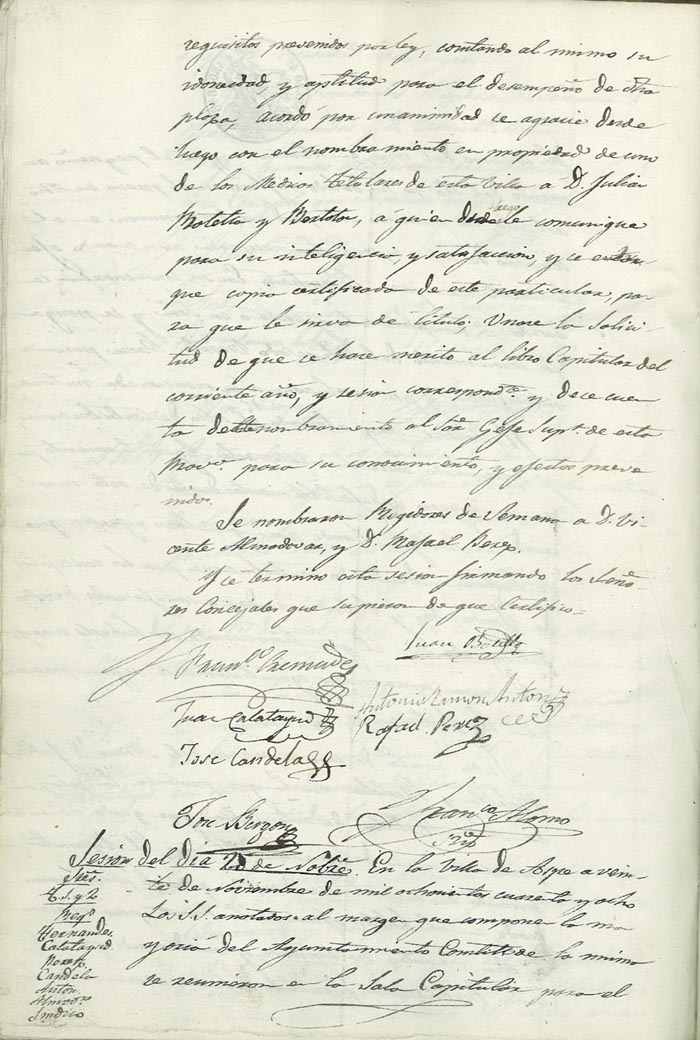 requisitos prevenidos por ley, constando al mismo su
idoneidad y aptitud para el desempeño de dha
plaza, acordó por unanimidad se agracie desde
luego con el nombramiento en propiedad de uno
de los Medicos titulares de esta Villa a D. Julian
y Bertoto, a quien desde luego le comunique
para su inteligencia, y satisfaccion, y se
que copia certificada de este particular, pa-
ra que le sirva de titulo; Unase la Solici-
tud de que se hace merito al libro Capitular del
corriente año, y sesion correspondte. y dese cuen
ta del nombramiento al Sor. Gefe Supr. de esta
Prova. para su conocimiento, y efectos preve
nidos.
Se nombraron Regidores de Semana a D. Vi-
cente Almodovar, y D. Rafael Perez.
Y se termino esta sesion firmando los Seño
res Concejales que supieron de que Certifico-
Juan
Franco. Cremades
Antonio Ramon Anton
Juan Calatayud
Rafael Perez
Jose Candela
Jose
Franco Alonso
Srio
Sesion del dia 20 de Nobre. En la Villa de Aspe a vein-
te de Noviembre de mil ochocientos cuarenta y ocho
Los S.S. anotados al margen que componen la ma
yoria del Ayuntamiento Constl. de la misma
se reunieron en la Sala Capitular para el
Sres.
T. S. y 2
Regs.
Hernandez
Calatayud
Perez
Candela
Anton
Almodr.
Sindico